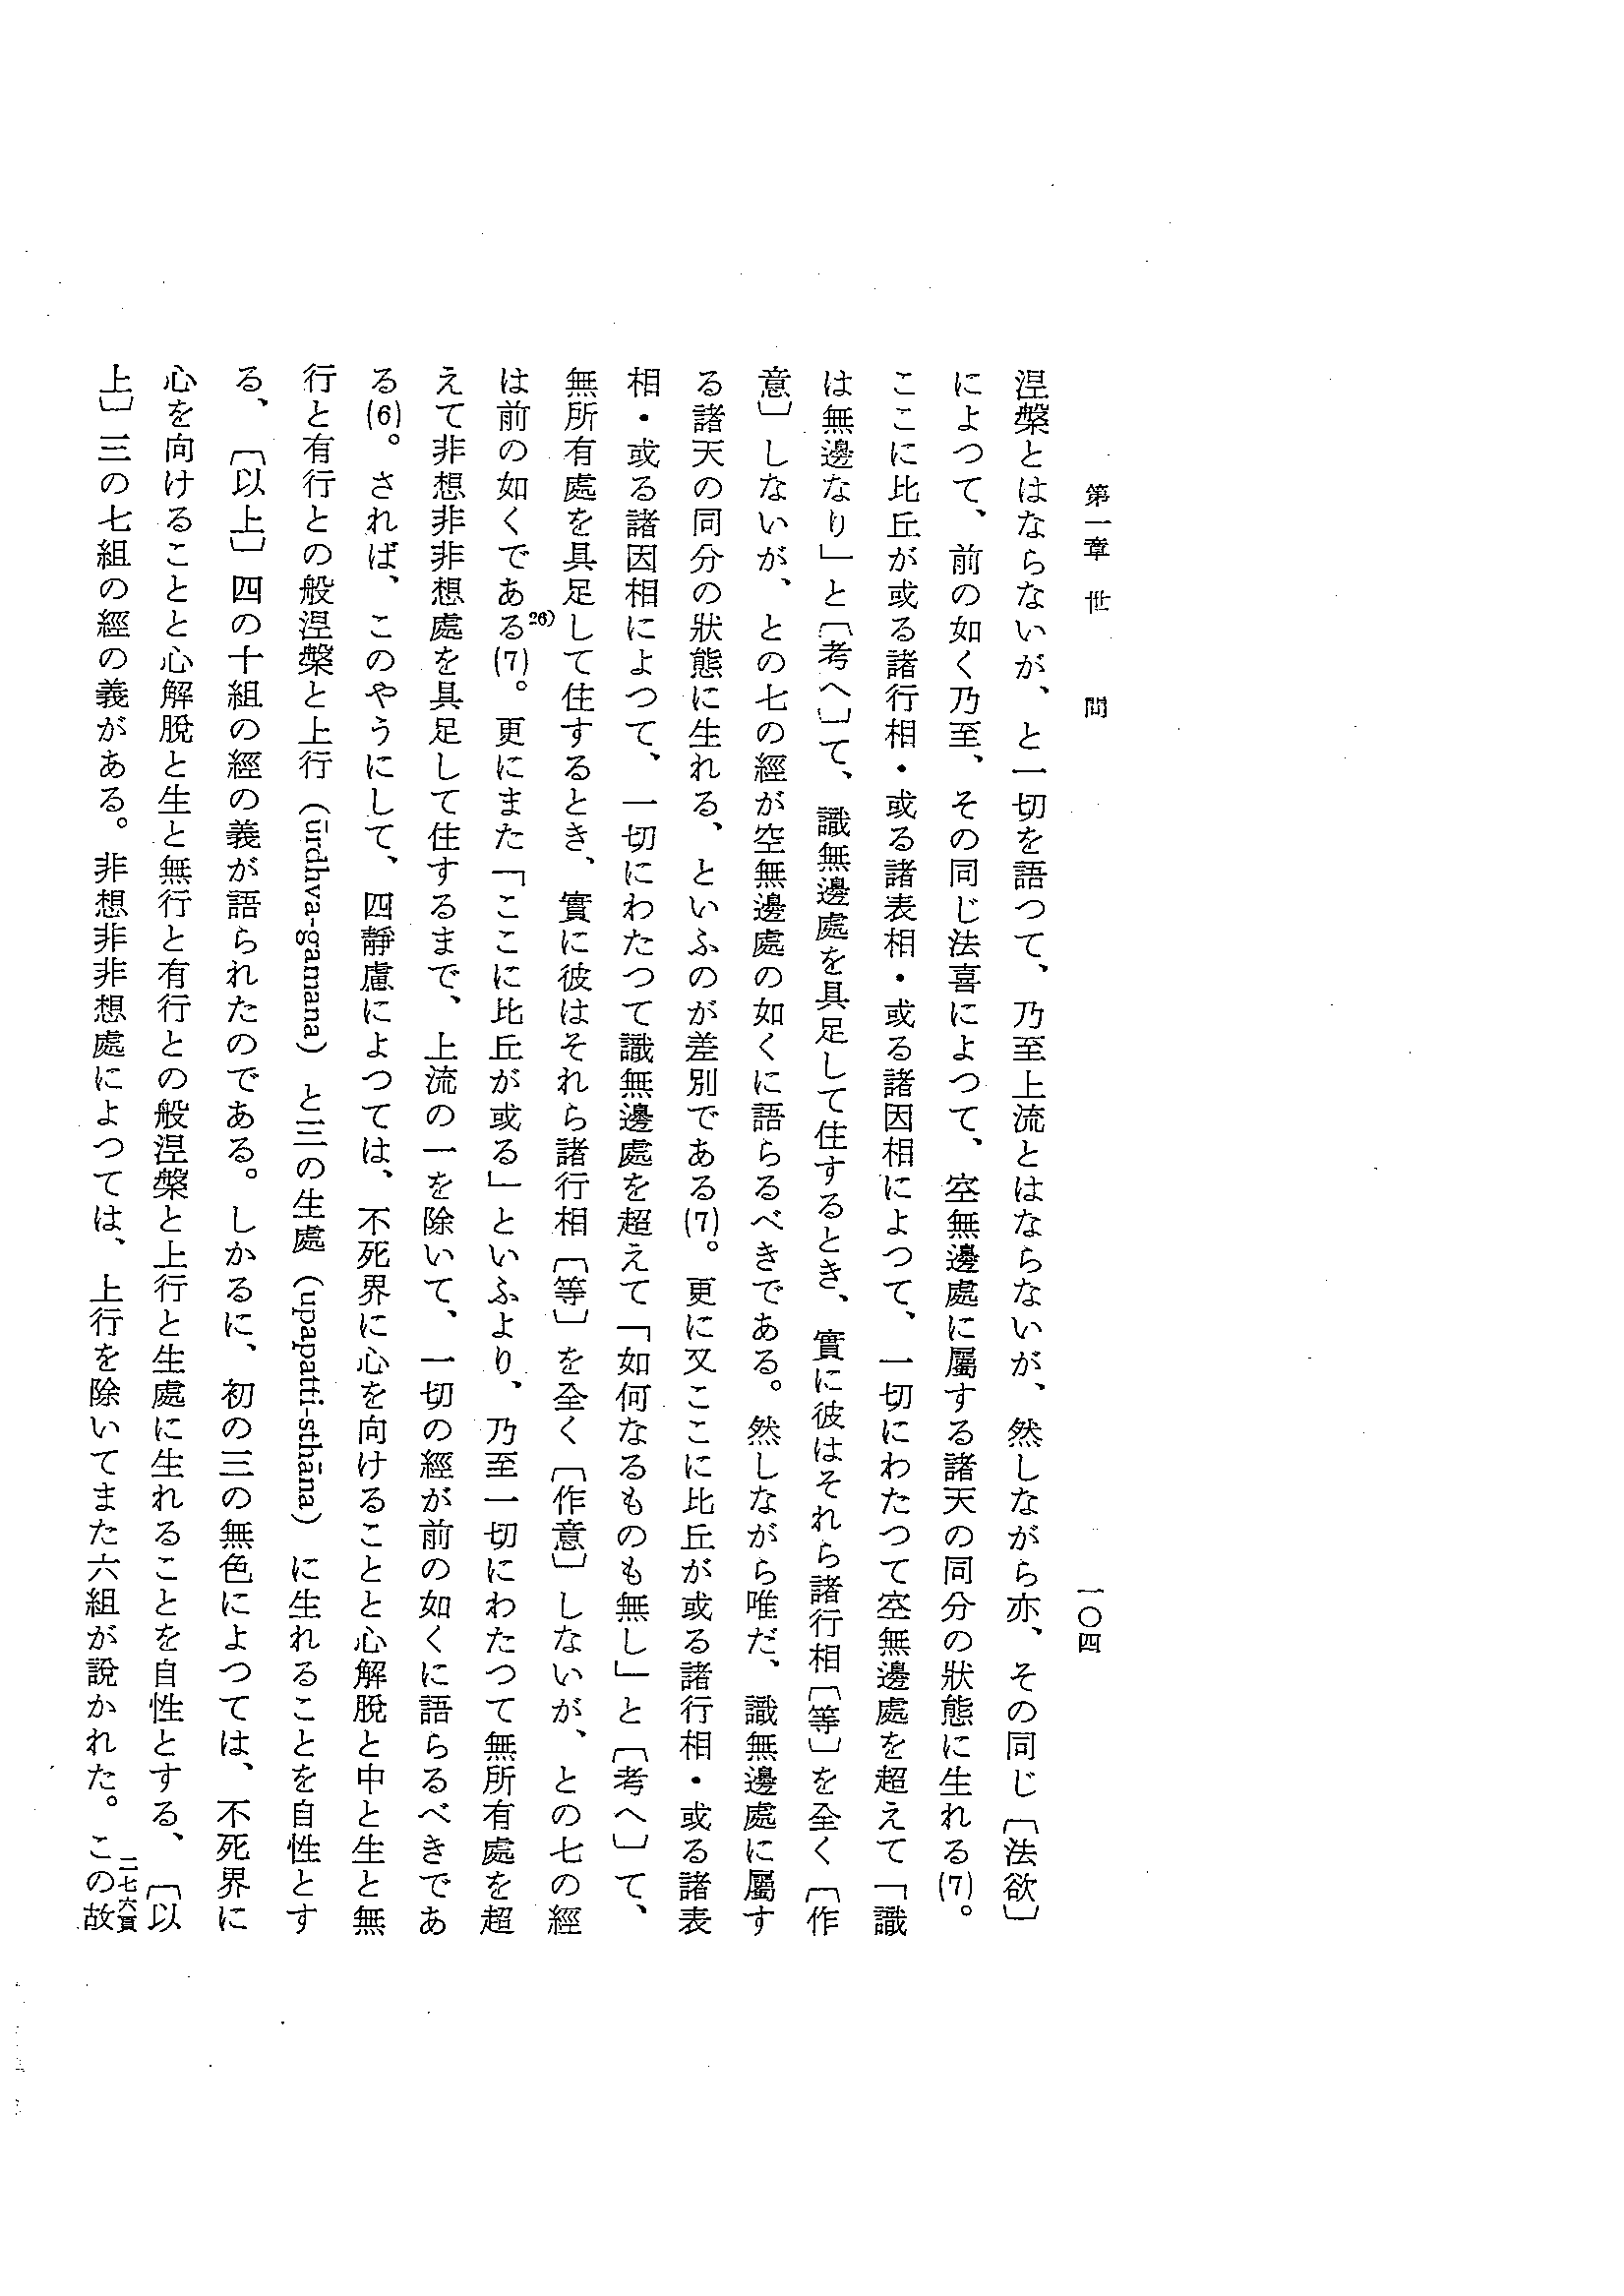 第一章 世間
一〇四
涅槃とはならないが、と一切を語つて、乃至上流とはならないが、然しながら亦、その同じ〔法欲〕
によつて、前の如く乃至、その同じ法喜によつて、空無邊處に屬する諸天の同分の狀態に生れる(7)。
ここに比丘が或る諸行相・或る諸表相・或る諸因相によつて、一切にわたつて空無邊處を超えて「識
は無邊なり」と〔考へ〕て、識無邊處を具足して住するとき、實に彼はそれら諸行相〔等〕を全く〔作
意〕しないが、との七の經が空無邊處の如くに語らるべきである。然しながら唯だ、識無邊處に屬す
る諸天の同分の狀態に生れる、といふのが差別である(7)。更に又ここに比丘が或る諸行相・或る諸表
相・或る諸因相によつて、一切にわたつて識無邊處を超えて「如何なるものも無し」と〔考へ〕て、
無所有處を具足して住するとき、實に彼はそれら諸行相〔等〕を全く〔作意〕しないが、との七の經
は前の如くである(7)。26)更にまた「ここに比丘が或る」といふより、乃至一切にわたつて無所有處を超
えて非想非非想處を具足して住するまで、上流の一を除いて、一切の經が前の如くに語らるべきであ
る(6)。されば、このやうにして、四靜慮によつては、不死界に心を向けることと心解脫と中と生と無
行と有行との般涅槃と上行（ūrdhva-gamana）と三の生處（upapatti-sthāna）に生れることを自性とす
る、〔以上〕四の十組の經の義が語られたのである。しかるに、初の三の無色によつては、不死界に
心を向けることと心解脫と生と無行と有行との般涅槃と上行と生處に生れることを自性とする、〔以
上〕三の七組の經の義がある。非想非非想處によつては、上行を除いてまた六組が說かれた。この故
二七六頁